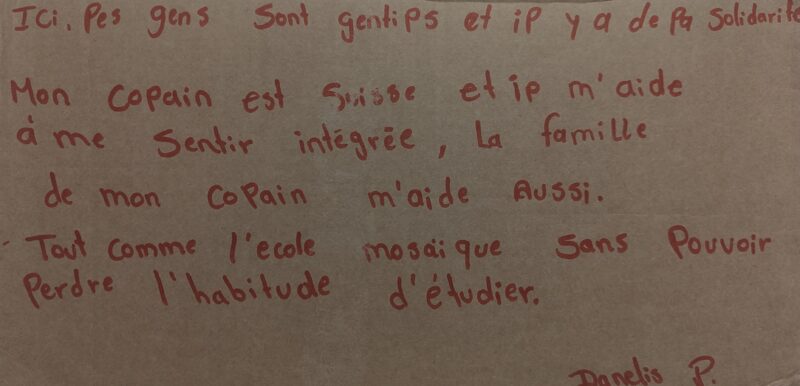 Ici, les gens sont gentils et il y a de la solidarité
Mon copain est Suisse et il m'aide
à me sentir intégrée, La famille
de mon copain m'aide Aussi.
Tout comme l'ecole mosaïque sans Pouvoir
Perdre l'habitude d'étudier.
Danelis P.